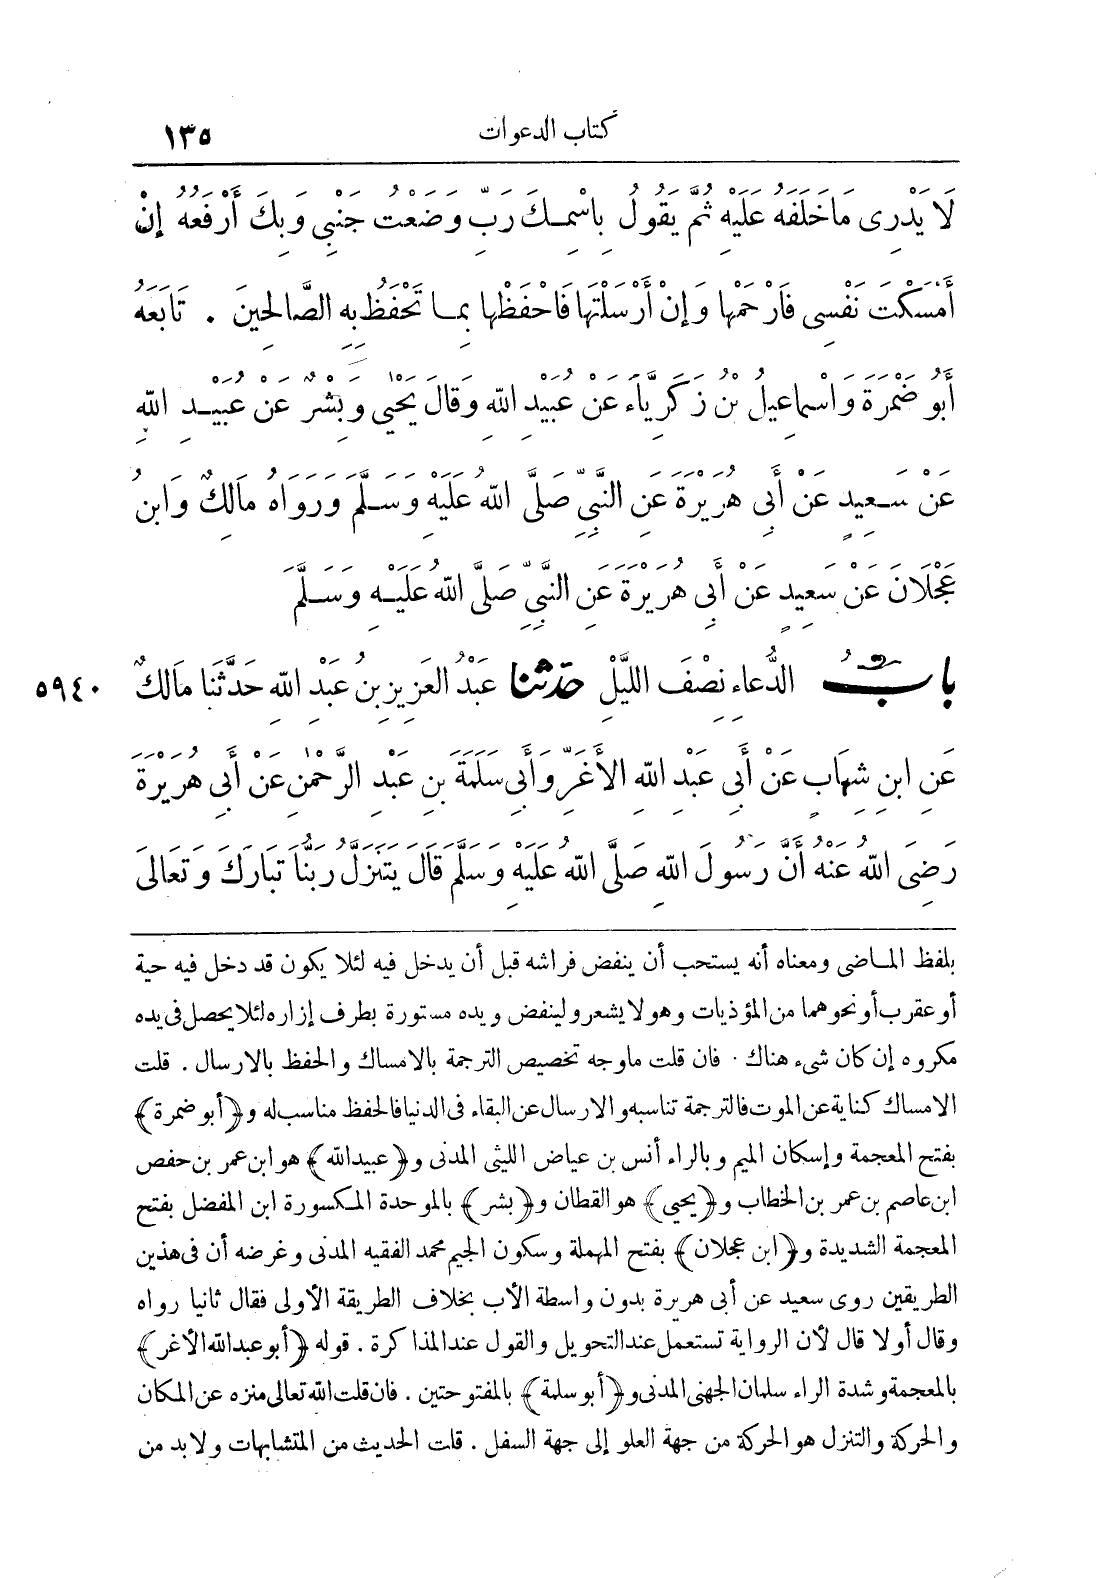 كتاب الدعوات ١٣٥
لَا يَدْرِى مَا خَلَفَهُ عَلَيْهِ ثُمَّ يَقُولُ بِاسْمِكَ رَبِّ وَضَعْتُ جَنْبِى وَبِكَ أَرْفَعُهُ إِنْ
أَمْسَكْتَ نَفْسِى فَارْحَمْهَا وَإِنْ أَرْسَلْتَهَا فَاحْفَظْهَا بِمَا تَحْفَظُ بِهِ الصَّالِحِينَ . تَابَعَهُ
أَبُو ضَمْرَةَ وَاسْمَاعِيلُ بْنُ زَكَرِيَّاءَ عَنْ عُبَيْدِ اللهِ وَقَالَ يَحْيَى وَبِشْرٌ عَنْ عُبَيْدِ اللهِ
عَنْ سَعِيدٍ عَنْ أَبِى هُرَيْرَةَ عَنِ النَّبِىِّ صَلَّى اللهُ عَلَيْهِ وَسَلَّمَ وَرَوَاهُ مَالِكٌ وَابْنُ
عَجْلَانَ عَنْ سَعِيدٍ عَنْ أَبِى هُرَيْرَةَ عَنِ النَّبِىِّ صَلَّى اللهُ عَلَيْهِ وَسَلَّمَ
بَابُ الدُّعَاءِ نِصْفَ اللَّيْلِ حَدَّثَنَا عَبْدُ الْعَزِيزِ بْنُ عَبْدِ اللهِ حَدَّثَنَا مَالِكٌ ٥٩٤٠
عَنِ ابْنِ شِهَابٍ عَنْ أَبِى عَبْدِ اللهِ الأَغَرِّ وَأَبِى سَلَمَةَ بْنِ عَبْدِ الرَّحْمٰنِ عَنْ أَبِى هُرَيْرَةَ
رَضِىَ اللهُ عَنْهُ أَنَّ رَسُولَ اللهِ صَلَّى اللهُ عَلَيْهِ وَسَلَّمَ قَالَ يَتَنَزَّلُ رَبُّنَا تَبَارَكَ وَتَعَالَى
بلفظ الماضى ومعناه أنه يستحب أن ينفض فراشه قبل أن يدخل فيه لئلا يكون قد دخل فيه حية
أو عقرب أو نحوهما من المؤذيات وهو لا يشعر ولينفض ويده مستورة بطرف إزاره لئلا يحصل فى يده
مكروه إن كان شىء هناك . فان قلت ما وجه تخصيص الترجمة بالامساك والحفظ بالارسال . قلت
الامساك كناية عن الموت فالترجمة تناسبه والارسال عن البقاء فى الدنيا فالحفظ مناسب له و﴿أبو ضمرة﴾
بفتح المعجمة وإسكان الميم وبالراء أنس بن عياض الليثى المدنى و﴿عبيد الله﴾ هو ابن عمر بن حفص
ابن عاصم بن عمر بن الخطاب و﴿يحيى﴾ هو القطان و﴿بشر﴾ بالموحدة المكسورة ابن المفضل بفتح
المعجمة الشديدة و﴿ابن عجلان﴾ بفتح المهملة وسكون الجيم محمد الفقيه المدنى وغرضه أن فى هذين
الطريقين روى سعيد عن أبى هريرة بدون واسطة الأب بخلاف الطريقة الأولى فقال ثانيا رواه
وقال أولا قال لأن الرواية تستعمل عند التحويل والقول عند المذاكرة . قوله ﴿أبو عبد الله الأغر﴾
بالمعجمة وشدة الراء سلمان الجهنى المدنى و﴿أبو سلمة﴾ بالمفتوحتين . فان قلت الله تعالى منزه عن المكان
والحركة والتنزل هو الحركة من جهة العلو إلى جهة السفل . قلت الحديث من المتشابهات ولابد من